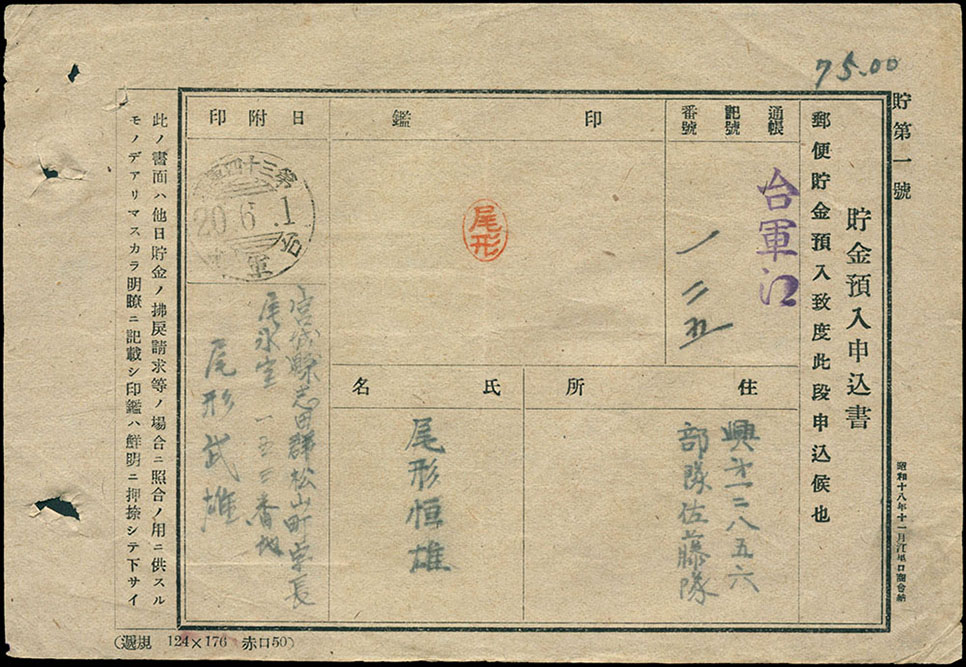 75.00
貯第一號
昭和十八年十一月江里口商會納
貯金預入申込書
郵便貯金預入致度此段申込候也
通帳記號番號
台軍江
一二五
印鑑
尾形
住所
興第一二八五六
部隊佐藤隊
氏名
尾形恒雄
日附印
第三十四
20.6.1
台
軍
宮城縣志田群松山町字長
尾氷室 一五三番地
尾形武雄
此ノ書面ハ他日貯金ノ拂戻請求等ノ場合ニ照合ノ用ニ供スル
モノデアリマスカラ明瞭ニ記載シ印鑑ハ鮮明ニ押捺シテ下サイ
124×176 赤口50)